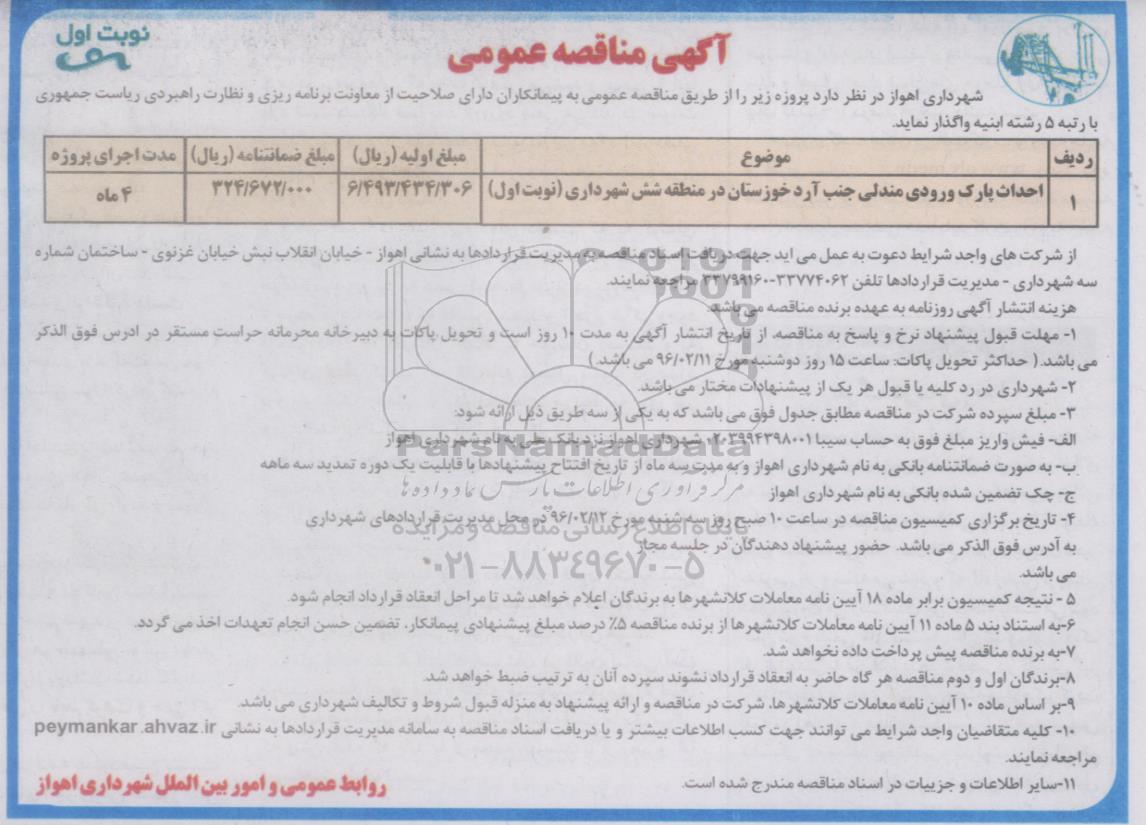 نوبت اول
آگهی مناقصه عمومی
شهرداری اهواز در نظر دارد پروزه زیر را از طریق مناقصه عمومی به پیمانکاران دارای صلاحیت از معاونت برنامه ریزی و نظارت راهبردی ریاست جمهوری
با رتبه ۵ رشته ابنیه واگذار نماید.
ردیف موضوع مبلغ اولیه (ریال) مبلغ ضمانتنامه (ریال) مدت اجرای پروژه
۱ احداث پارک ورودی مندلی جنب آرد خوزستان در منطقه شش شهرداری (نوبت اول) ۶/۴۹۳/۴۳۴/۳۰۶ ۳۲۴/۶۷۲/۰۰۰ ۴ ماه
از شرکت های واجد شرایط دعوت به عمل می اید جهت دریافت اسناد مناقصه به مدیریت قراردادها به نشانی اهواز - خیابان انقلاب نبش خیابان غزنوی - ساختمان شماره
سه شهرداری - مدیریت قراردادها تلفن ۳۳۷۷۴۰۶۲-۳۳۷۹۹۱۶۰ مراجعه نمایند.
هزینه انتشار آگهی روزنامه به عهده برنده مناقصه می باشد.
۱- مهلت قبول پیشنهاد نرخ و پاسخ به مناقصه، از تاریخ انتشار آگهی به مدت ۱۰ روز است و تحویل پاکات به دبیرخانه محرمانه حراست مستقر در ادرس فوق الذکر
می باشد. ( حداکثر تحویل پاکات: ساعت ۱۵ روز دوشنبه مورخ ۹۶/۰۲/۱۱ می باشد. )
۲- شهرداری در رد کلیه یا قبول هر یک از پیشنهادات مختار می باشد.
۳- مبلغ سپرده شرکت در مناقصه مطابق جدول فوق می باشد که به یکی از سه طریق ذیل ارائه شود:
الف- فیش واریز مبلغ فوق به حساب سیبا ۰۲۰۳۹۹۴۳۹۸۰۰۱ شهرداری اهواز نزد بانک ملی به نام شهرداری اهواز
ParsNamadData
ب- به صورت ضمانتنامه بانکی به نام شهرداری اهواز و به مدت سه ماه از تاریخ افتتاح پیشنهادها با قابلیت یک دوره تمدید سه ماهه
مرکز فرآوری اطلاعات پارس نماد داده ها
ج- چک تضمین شده بانکی به نام شهرداری اهواز
۴- تاریخ برگزاری کمیسیون مناقصه در ساعت ۱۰ صبح روز سه شنبه مورخ ۹۶/۰۲/۱۲ در محل مدیریت قراردادهای شهرداری
پایگاه اطلاع رسانی مناقصه و مزایده
به آدرس فوق الذکر می باشد. حضور پیشنهاد دهندگان در جلسه مجاز
۰۲۱-۸۸۳۴۹۶۷۰-۵
می باشد.
۵ - نتیجه کمیسیون برابر ماده ۱۸ آیین نامه معاملات کلانشهرها به برندگان اعلام خواهد شد تا مراحل انعقاد قرارداد انجام شود.
۶-به استناد بند ۵ ماده ۱۱ آیین نامه معاملات کلانشهرها از برنده مناقصه ۵٪ درصد مبلغ پیشنهادی پیمانکار، تضمین حسن انجام تعهدات اخذ می گردد.
۷-به برنده مناقصه پیش پرداخت داده نخواهد شد.
۸-برندگان اول و دوم مناقصه هر گاه حاضر به انعقاد قرارداد نشوند سپرده آنان به ترتیب ضبط خواهد شد.
۹-بر اساس ماده ۱۰ آیین نامه معاملات کلانشهرها، شرکت در مناقصه و ارائه پیشنهاد به منزله قبول شروط و تکالیف شهرداری می باشد.
۱۰- کلیه متقاضیان واجد شرایط می توانند جهت کسب اطلاعات بیشتر و یا دریافت اسناد مناقصه به سامانه مدیریت قراردادها به نشانی peymankar.ahvaz.ir
مراجعه نمایند.
۱۱-سایر اطلاعات و جزییات در اسناد مناقصه مندرج شده است.
روابط عمومی و امور بین الملل شهرداری اهواز